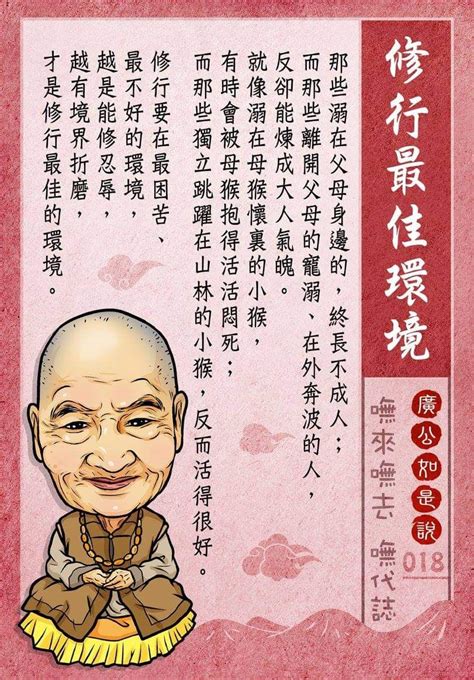 修行最佳環境
廣公如是說
018
嘸來嘸去 嘸代誌
那些溺在父母身邊的，終長不成人；
而那些離開父母的寵溺、在外奔波的人，
反卻能煉成大人氣魄。
就像溺在母猴懷裏的小猴，
有時會被母猴抱得活活悶死；
而那些獨立跳躍在山林的小猴，反而活得很好。
修行要在最困苦、
最不好的環境，
越是能修忍辱，
越有境界折磨，
才是修行最佳的環境。